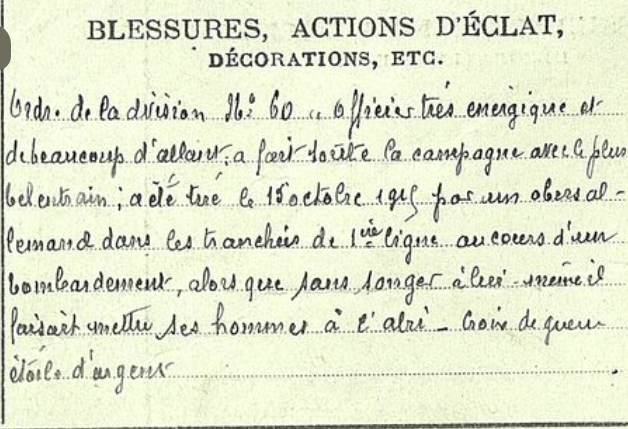 BLESSURES, ACTIONS D'ÉCLAT,
DÉCORATIONS, ETC.
Ordre de la division No 60 " Officier très energique et
de beaucoup d'allant; a fait toute la campagne avec le plus
bel entrain; a été tué le 15 octobre 1915 par un obus al-
lemand dans les tranchées de 1ère ligne au cours d'un
bombardement, alors que sans songer à lui-même il
faisait mettre ses hommes à l'abri - Croix de guerre
étoile d'argent